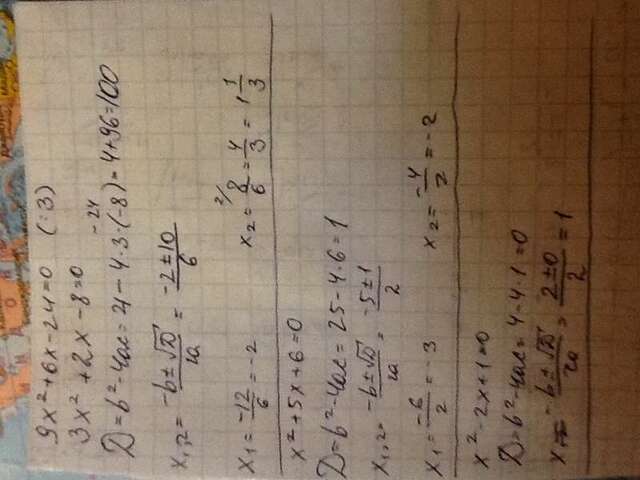 9x² + 6x - 24 = 0 (:3)
3x² + 2x - 8 = 0
-24
D = b² - 4ac = 4 - 4·3·(-8) = 4 + 96 = 100
x₁,₂ = (-b ± √D)/2a = (-2 ± 10)/6
x₁ = -12/6 = -2 x₂ = 2/ 8/6 = 4/3 = 1 1/3
x² + 5x + 6 = 0
D = b² - 4ac = 25 - 4·6 = 1
x₁,₂ = (-b ± √D)/2a = (-5 ± 1)/2
x₁ = -6/2 = -3 x₂ = -4/2 = -2
x² - 2x + 1 = 0
D = b² - 4ac = 4 - 4·1 = 0
x = (-b ± √D)/2a = (2 ± 0)/2 = 1